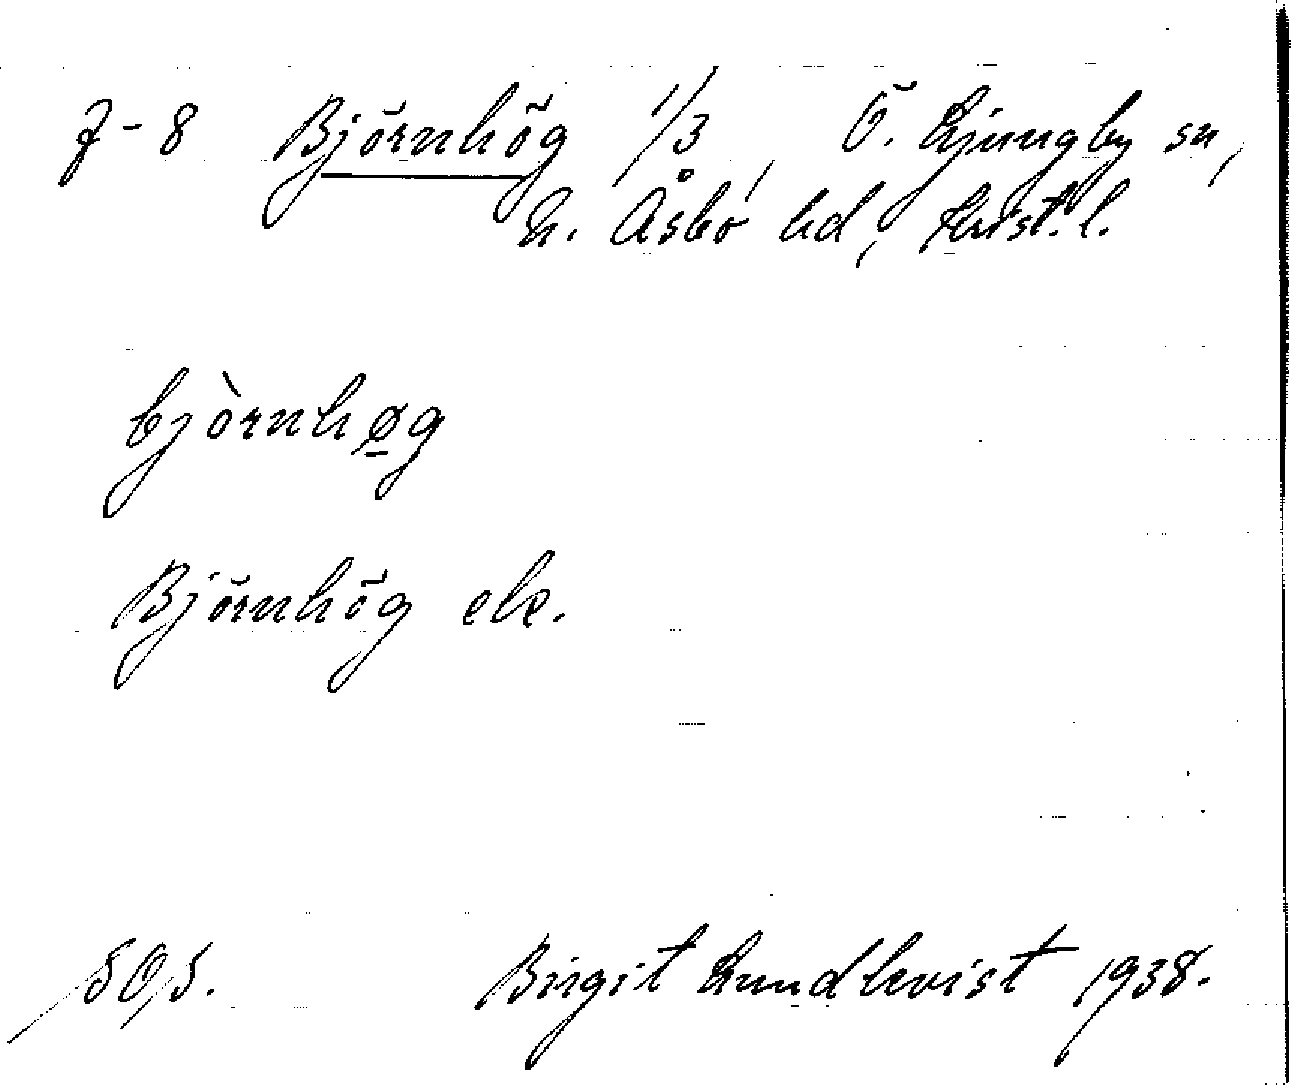 7-8 Björnhög 1/3, Ö. Ljungby sn,
N. Åsbo hd, Krist. l.
bjòrnhøg
Björnhög ek.
Birgit Lundkvist 1938.